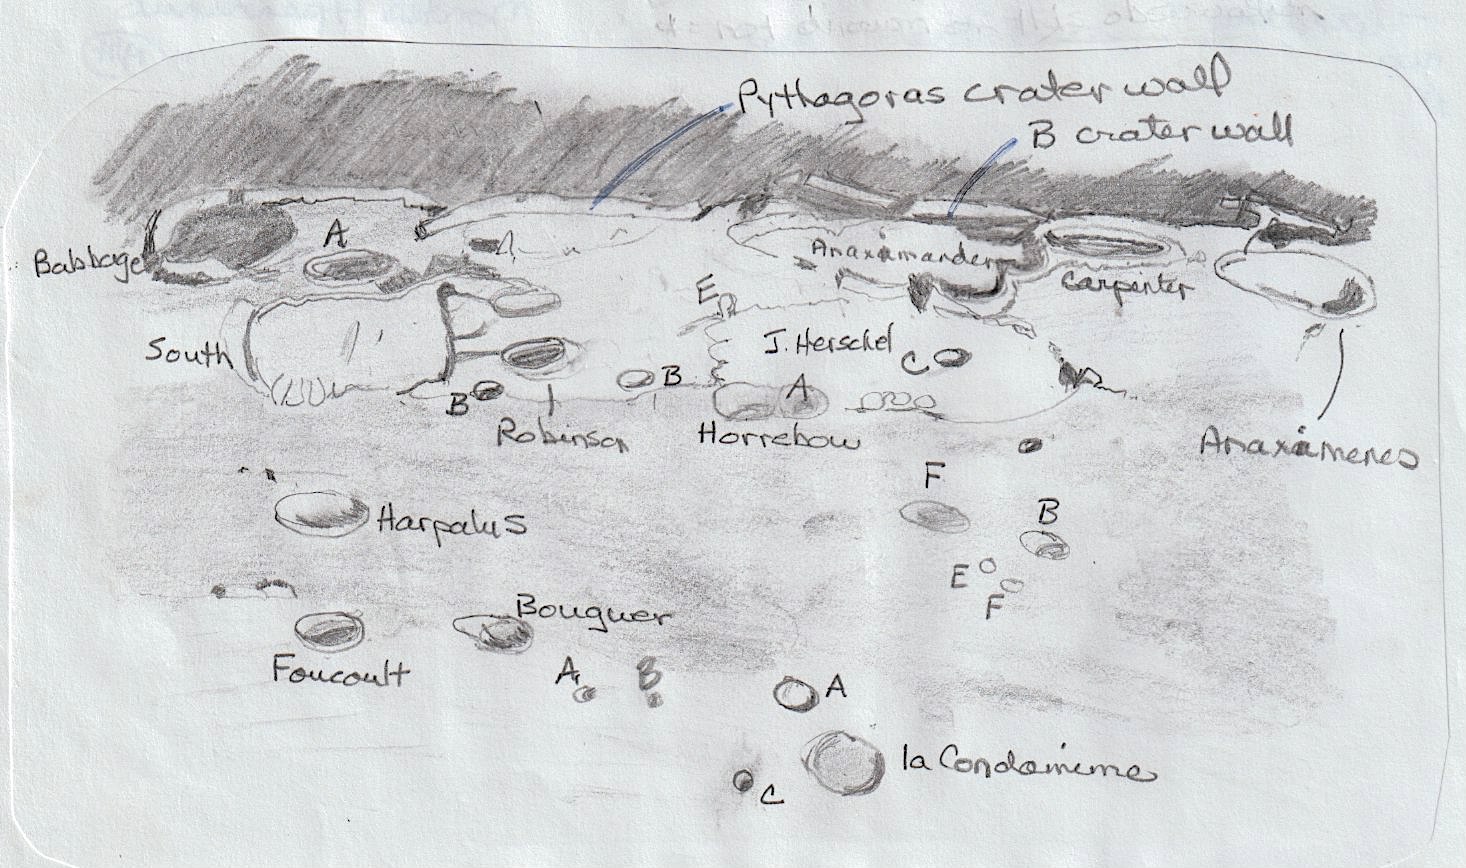 Pythagoras crater wall
B crater wall
A
Babbage
Anaxamander
Carpenter
E
South
J. Herschel
C
B
B
A
Robinson
Horrebow
Anaxamenes
F
Harpalus
B
E
F
Bouguer
Foucoult
A
B
A
la Condamime
C